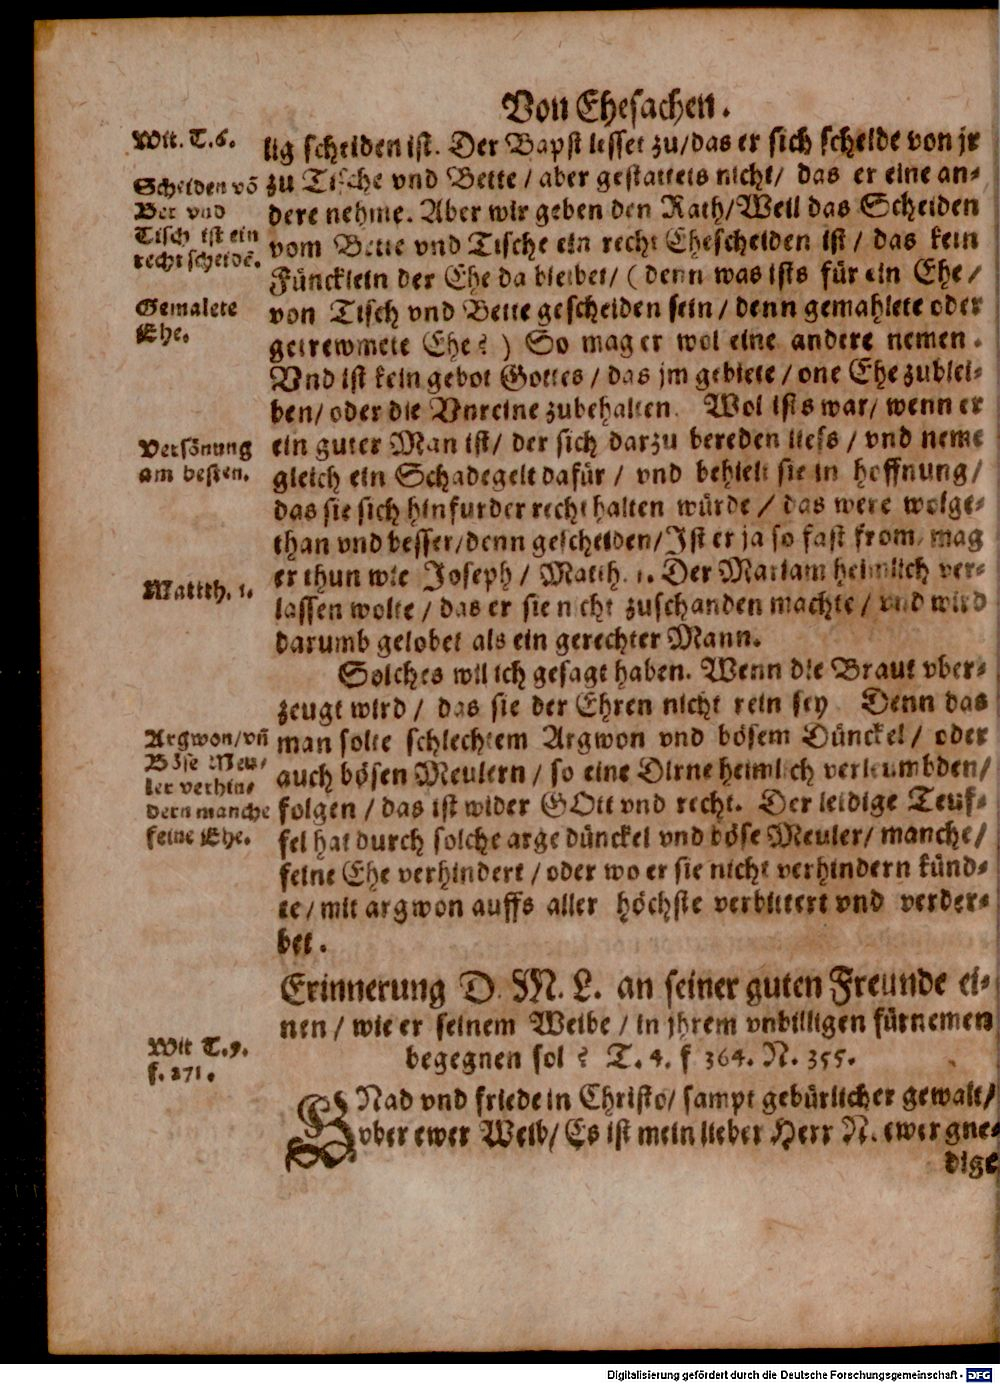 Von Ehesachen.
Wit. T.6.
lig scheiden ist. Der Bapst lesset zu/das er sich scheide von jr
Scheiden vō
Bet vnd
Tisch ist ein
recht scheidē.
zu Tische vnd Bette / aber gestattets nicht/ das er eine an-
dere nehme. Aber wir geben den Rath/Weil das Scheiden
vom Bette vnd Tische ein recht Ehescheiden ist / das kein
Füncklein der Ehe da bleibet/ (denn was ists für ein Ehe/
Gemalete
Ehe.
von Tisch vnd Bette gescheiden sein / denn gemahlete oder
getrewmete Ehe? ) So mag er wol eine andere nemen.
Vnd ist kein gebot Gottes / das jm gebiete / one Ehe zublei-
ben/ oder die Vnreine zubehalten. Wol ists war/ wenn er
Versönung
am besten.
ein guter Man ist/ der sich darzu bereden liess / vnd neme
gleich ein Schadegelt dafür / vnd behielt sie in hoffnung/
das sie sich hinfurder recht halten würde / das were wolge-
than vnd besser/denn gescheiden/Ist er ja so fast from/ mag
Mattth. 1.
er thun wie Joseph / Matth. 1. Der Mariam heimlich ver-
lassen wolte / das er sie nicht zuschanden machte / vnd wird
darumb gelobet als ein gerechter Mann.
Solches wil ich gesagt haben. Wenn die Braut vber-
zeugt wird / das sie der Ehren nicht rein sey Denn das
Argwon/vñ
Böse Meu-
ler verhin-
dern manche
feine Ehe.
man solte schlechtem Argwon vnd bösem Dünckel / oder
auch bösen Meulern / so eine Dirne heimlich verleumbden/
folgen / das ist wider GOtt vnd recht. Der leidige Teuf-
fel hat durch solche arge dünckel vnd böse Meuler/ manche/
feine Ehe verhindert / oder wo er sie nicht verhindern künd-
te/ mit argwon auffs aller höchste verbittert vnd verder-
bet.
Erinnerung D. M. L. an seiner guten Freunde ei-
nen / wie er seinem Weibe / in jhrem vnbilligen fürnemen
begegnen sol ? T. 4. f 364. N. 355.
Wit T.9.
f. 271.
GNad vnd friede in Christo/ sampt gebürlicher gewalt/
vber ewer Weib/ Es ist mein lieber Herr N. ewer gne-
dige
Digitalisierung gefördert durch die Deutsche Forschungsgemeinschaft - DFG